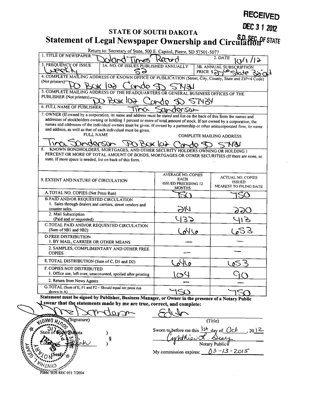 RECEIVED
DEC 31 2012
S.D. SEC. OF STATE
STATE OF SOUTH DAKOTA
Statement of Legal Newspaper Ownership and Circulation
Return to: Secretary of State, 500 E. Capitol, Pierre, SD 57501-5077
1. TITLE OF NEWSPAPER
Times Record
2. DATE
10/1/12
3. FREQUENCY OF ISSUE
weekly
3A. NO. OF ISSUES PUBLISHED ANNUALLY
52
3B. ANNUAL SUBSCRIPTION PRICE
4. COMPLETE MAILING ADDRESS OF KNOWN OFFICE OF PUBLICATION (Street, City, County, State and ZIP+4 Code) (Not printers)
PO Box
5. COMPLETE MAILING ADDRESS OF THE HEADQUARTERS OR GENERAL BUSINESS OFFICES OF THE PUBLISHER (Not printers)
PO Box
6. FULL NAME OF PUBLISHER:
Tina Sanderson
7. OWNER (If owned by a corporation, its name and address must be stated and list on the back of this form the names and
addresses of stockholders owning or holding 1 percent or more of total amount of stock. If not owned by a corporation, the
names and addresses of the individual owners must be given. If owned by a partnership or other unincorporated firm, its name
and address, as well as that of each individual must be given.
FULL NAME COMPLETE MAILING ADDRESS
Tina Sanderson PO Box
8. KNOWN BONDHOLDERS, MORTGAGEES, AND OTHER SECURITY HOLDERS OWNING OR HOLDING 1
PERCENT OR MORE OF TOTAL AMOUNT OF BONDS, MORTGAGES OR OTHER SECURITIES (If there are none, so
state. If more space is needed, list on back of this form.
9. EXTENT AND NATURE OF CIRCULATION
AVERAGE NO. COPIES EACH ISSUED PRECEDING 12 MONTHS
ACTUAL NO. COPIES ISSUED NEAREST TO FILING DATE
A. TOTAL NO. COPIES (Net Press Run) 750 750
B. PAID AND/OR REQUESTED CIRCULATION
1. Sales through dealers and carriers, street vendors and
counter sales. 214 220
2. Mail Subscription
(Paid and or requested) 432 413
C. TOTAL PAID AND/OR REQUESTED CIRCULATION
(Sum of 9B1 and 9B2) 646 653
D. FREE DISTRIBUTION
1. BY MAIL, CARRIER OR OTHER MEANS
2. SAMPLES, COMPLIMENTARY AND OTHER FREE
COPIES
E. TOTAL DISTRIBUTION (Sum of C, D1 and D2) 646 653
F. COPIES NOT DISTRIBUTED
1. Office use, left over, unaccounted, spoiled after printing 104 90
2. Return from News Agents
G. TOTAL (Sum of E, F1 and F2 – Should equal net press run
shown in A) 750 750
Statement must be signed by Publisher, Business Manager, or Owner in the presence of a Notary Public
I swear that the statements made by me are true, correct, and complete:
(Signature) (Title)
State of South Dakota
Sworn to before me this 1st day of Oct, 2012
Notary Public
My commission expires:
NOTARY